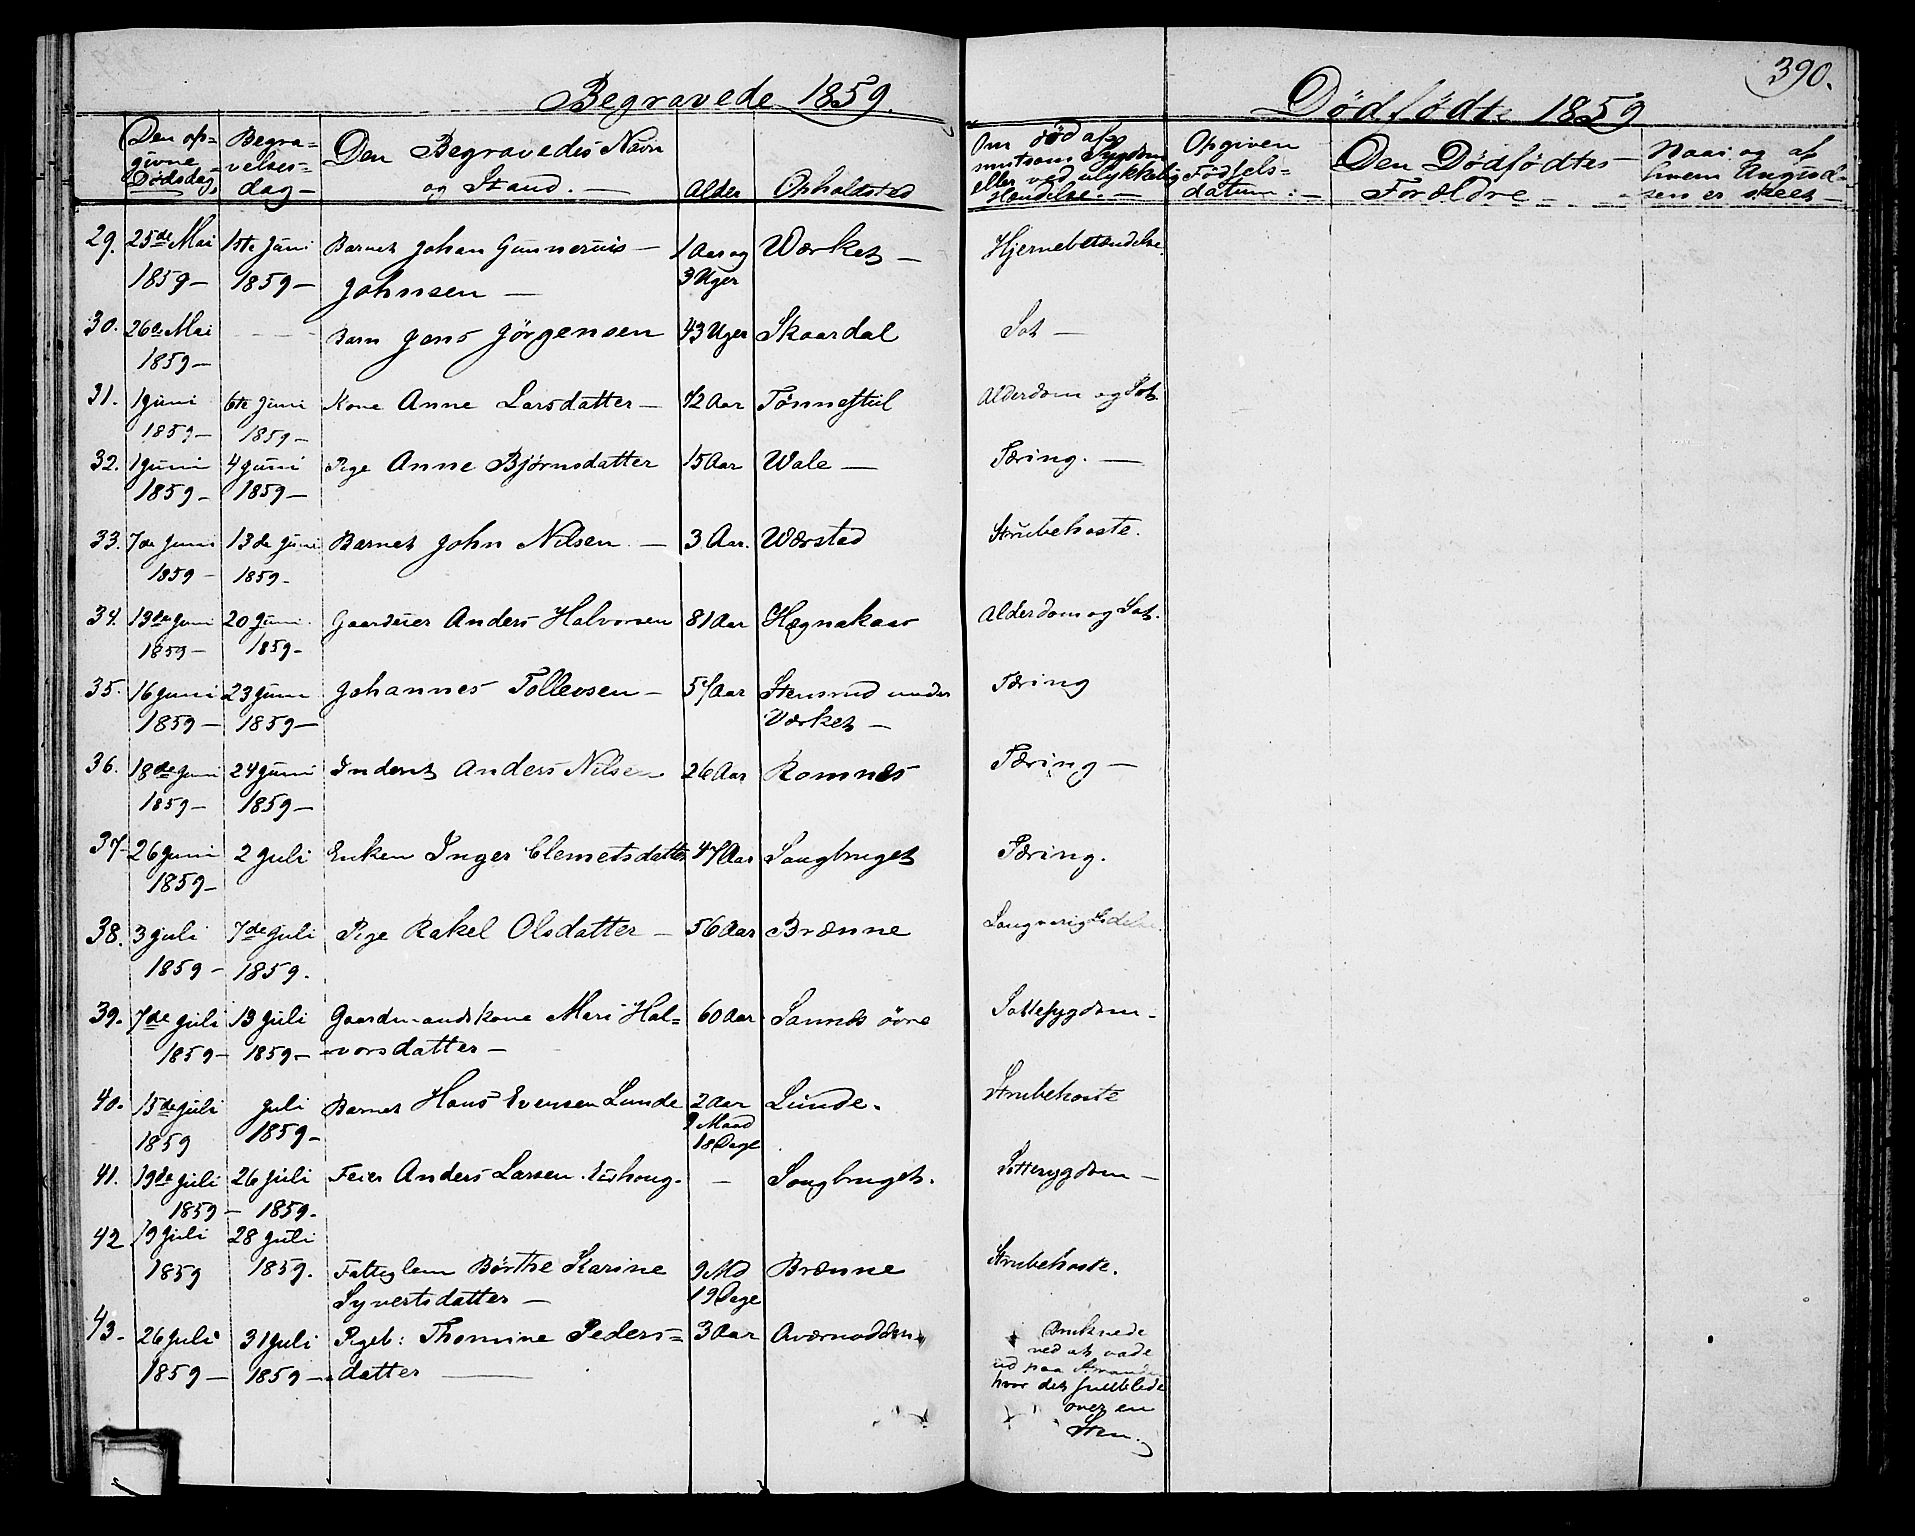 390.
Begravede 1859.
Dødfødte 1859
Den op-
givne
Dødsdag.
Begra-
velses-
dag-
Den Begravedes Navn
og Stand. -
Alder
Opholdsted
Om død af
smitsom Sygdom
eller ved ulykkelig
Hændelse. -
Opgiven
Fødsels-
datum: -
Den Dødfødtes
Forældre -
Naar og af
hvem
sen er skeet -
29. 25de Mai 1ste Juni Barnet Johan Gunnerius - 1 Aar og Værket - Hjernebetændelse.
1859- 1859- Johnsen - 3 Uger
30. 26de Mai - - - Barn Jens Jörgensen 43 Uger Skaardal Sot -
1859-
31. 1 Juni 6te Juni Kone Anne Larsdatter - Aar Tönnestul Alderdom og Sot.
1859- 1859-
32. 1 Juni 4 Juni Pige Anne Bjørnsdatter 15 Aar Wale - Tæring. -
1859- 1859-
33. 7de Juni 13de Juni Barnet John Nilsen - 3 Aar. Wærsted Strubehoste.
1859- 1859-
34. 13de Juni 20 Juni. Anders Halvorsen 81 Aar Hægnakaas Alderdom og Sot.
1859- 1859-
35. 16 Juni 23 Juni Johannes Tollevsen - Aar Stensrud under Tæring
1859- 1859- Værket -
36. 18de Juni 24 Juni Inderst Anders Nilsen 26 Aar Romnæs Tæring -
1859- 1859-
37- 26 Juni 2 Juli Enken Inger Clemetsdatter 47 Aar Saugbruget Tæring.
1859-
38. 3 Juli 7de Juli Pige Rakel Olsdatter - 56 Aar Brænne Langvarig Lidelse.
1859- 1859.
39. 7de Juli 13 Juli Gaardmandskone Mari Hal= 60 Aar Sannes övre Sottesygdom-
1859- 1859- -vorsdatter-
40. 15de Juli Juli Barnet Hans Evensen Lunde 2 Aar Lunde. Strubehoste
1859 1859- 9 Maad
18 Dage
41. 19de Juli 26 Juli Feier Anders Larsen - Saugbruget. Sottesygdom-
1859- 1859.
42 19 Juli 28 Juli
1859 1859. Fatteglem Børthe Karine 9 Md Brænne Strubehoste.
Syvertsdatter - 19 Dage
43. 26 Juli 31 Juli Pigeb: Thomine Peders= 3 Aar Aværnodden Druknede
1859- 1859- -datter - ved at vade
ud paa Stranden
hvor det
over en
Sten.